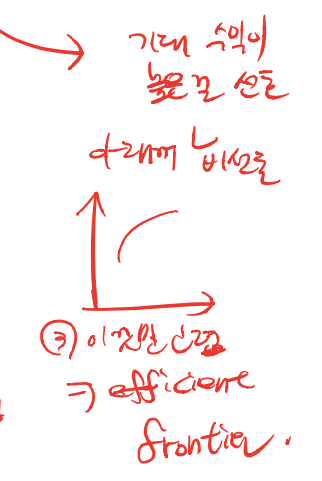 기대 수익이
높은걸 선호
아래께 비선호
③ 이것만
⇒ efficient
frontier.